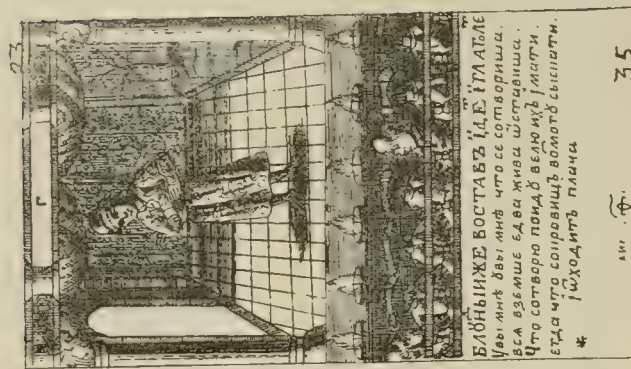 23
Г
БЛꙊНЫИЖЕ ВОСТАВЪ ЇДЕ ЇГЛАГОЛЕ
Увы мнѣ ꙋвы мнѣ что се сотвориша.
вся вземше едва жива ѡставиша.
Что сотворю поидꙋ велю ихъ јмати.
егда что сокровищъ сыскати.
плачи
*
.Ф.
35